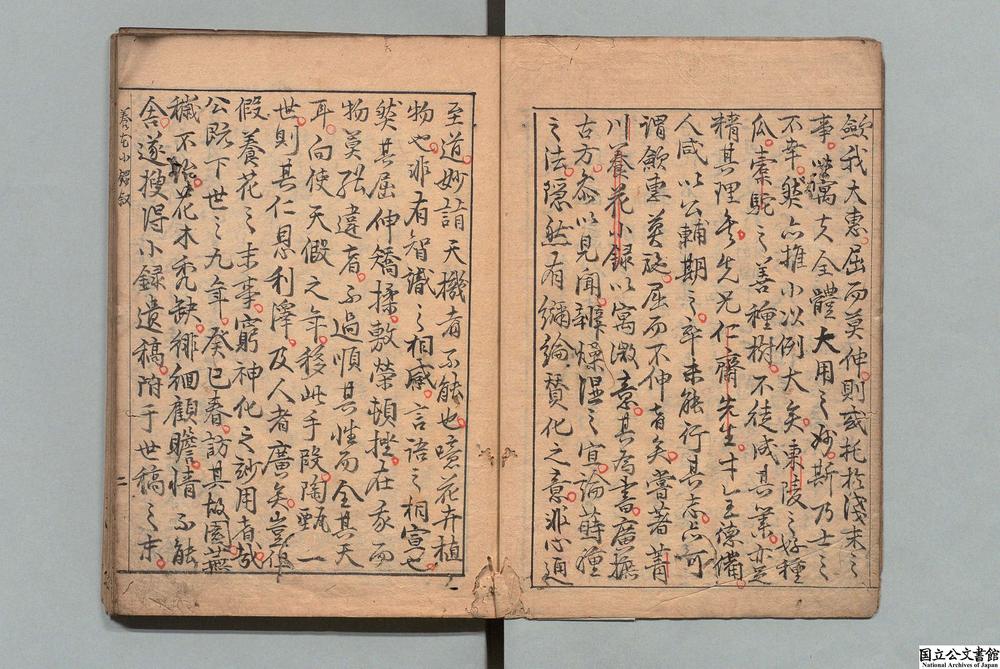 歛我大惠屈而莫伸則或托於淺末之
事以寓夫全體大用之妙斯乃士之
不幸然亦推小以例大矣東陵之好種
瓜橐駝之善種樹不徒成其業亦足
精其理矣先兄仁齋先生才全德備
人咸以公輔期之卒未能行其志亦可
謂歛惠莫施屈而不伸者矣嘗著菁
川養花小録以寓微意其為書廣摭
古方參以見聞辨燥湿之宜論蒔種
之法隱然有彌綸賛化之意非心通
至道妙詣天機者不能也噫花卉植
物也非有智識之相感言語之相宣也
然其屈伸矯揉敷榮頓挫在我而
物莫能違者不過順其性而全其天
耳向使天假之年移此手段陶甄一
世則其仁恩利澤及人者廣矣豈但
假養花之末事窮神化之妙用者哉
公既下世之九年癸巳春訪其故園蕪
穢不治花木禿缺徘徊顧瞻情不能
舍遂搜得小録遺稿附于世稿之末
養花小録叙
二
国立公文書館
National Archives of Japan